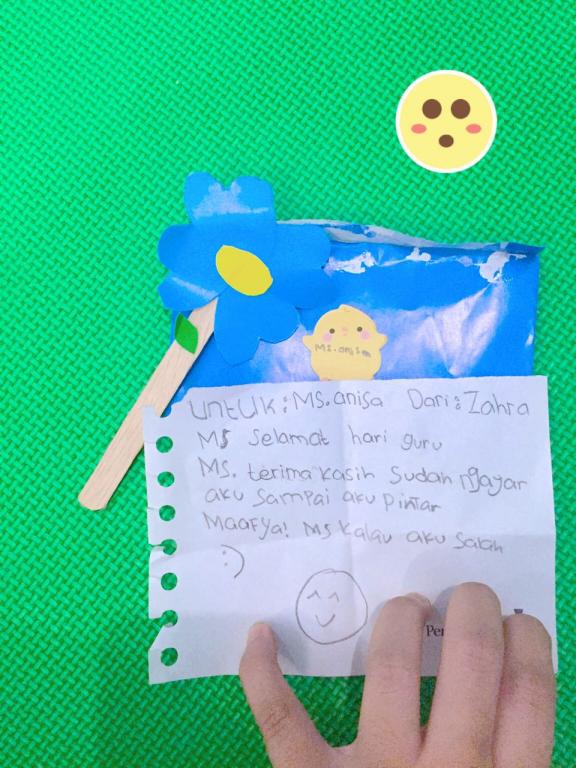 Ms. anisa
UNTUK: MS. anisa Dari: Zahra
MS Selamat hari guru
Ms. terima kasih sudah ngajar
aku sampai aku pintar
Maafya! Ms kalau aku salah
:)
Per